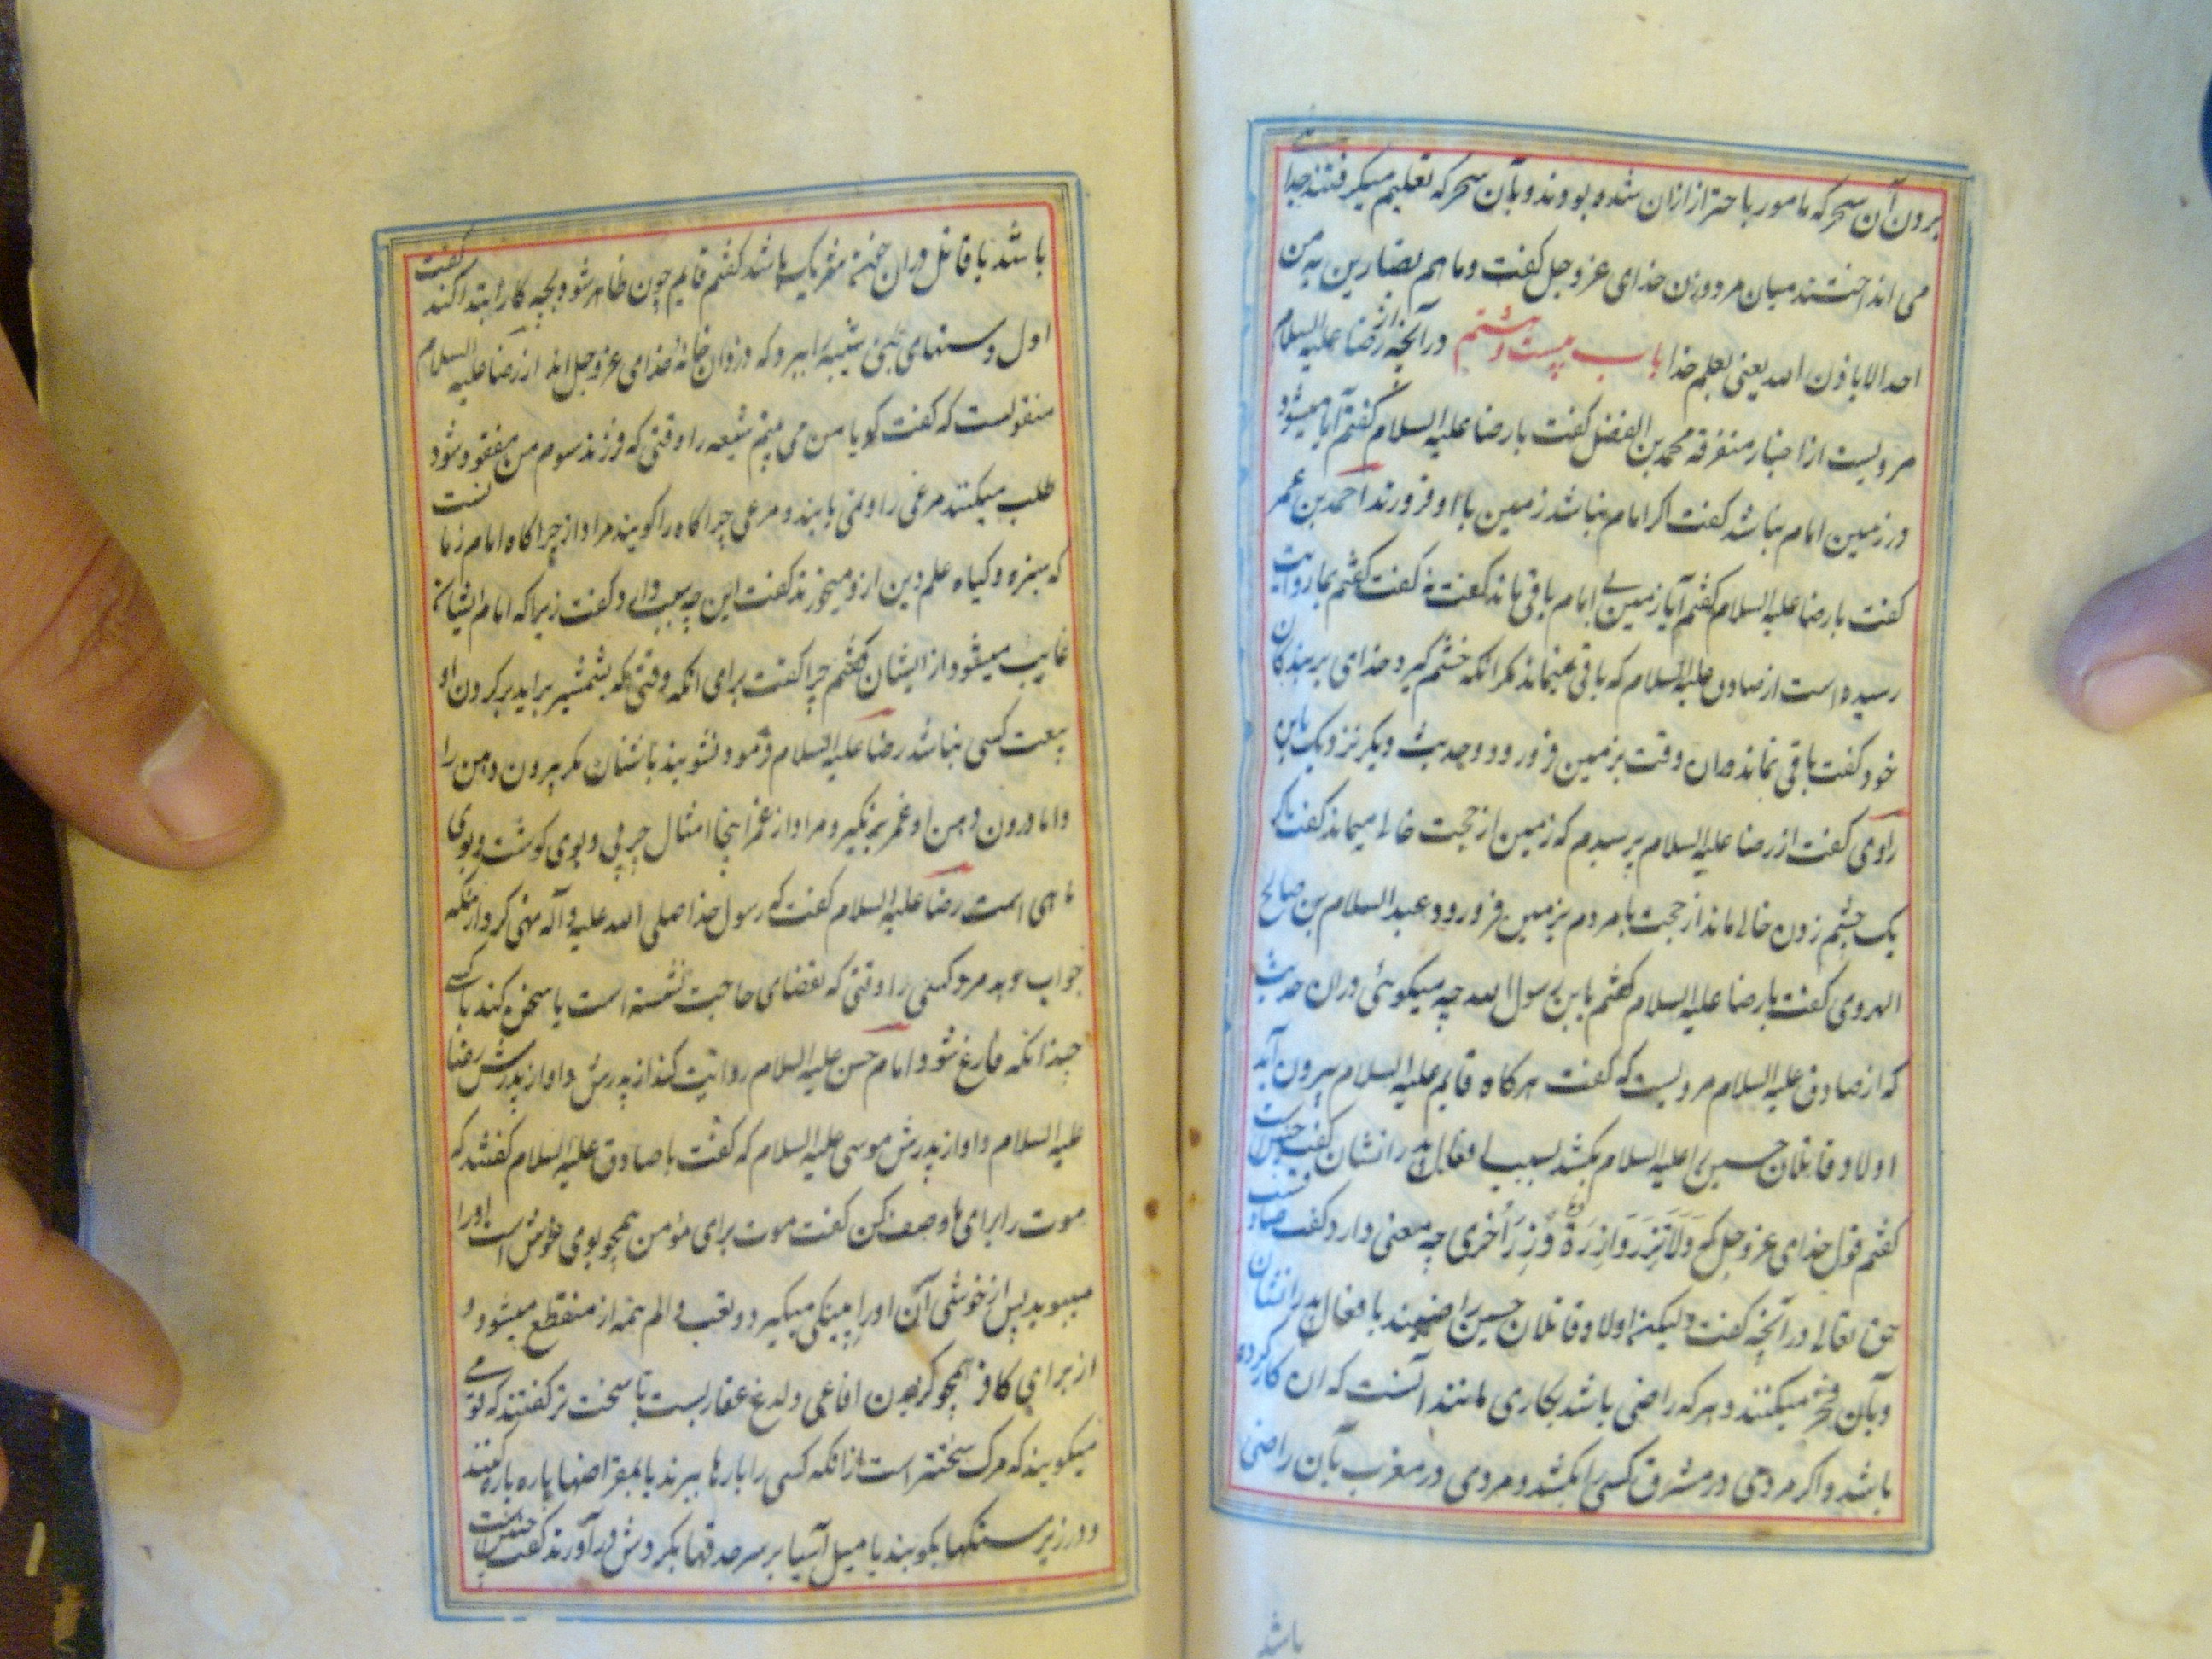 برون آن سحر که مامور باحتراز ازان شده بودند و بآن سحر که تعلیم میکرفتند جدا
می انداختند میان مرد و زن خدای عز و جل کفت و ما هم بضارین به من
احد الا باذن الله یعنی بعلم خدا باب بیست و هشتم در آنچه از رضا علیه السلام
مرویست از اخبار متفرقه محمد بن الفضل کفت با رضا علیه السلام کفتم آیا میشود
در زمین امام نباشد کفت اکر امام نباشد زمین با او فرورند احمد بن عمر
کفت با رضا علیه السلام کفتم آیا زمین بی امام باقی ماند کفت نه کفت کفتم بما روایت
رسیده است از صادق علیه السلام که باقی نمیماند مکر انکه خشم کیرد خدای بر بندکان
خود کفت باقی نماند دران وقت بزمین فرو رود و حدیث دیکر نزدیک باین
راوی کفت از رضا علیه السلام پرسیدم که زمین از حجت خالی میماند کفت اکر
یک چشم زدن خالی ماند از حجت با مردم بزمین فرو رود عبد السلام بن صالح
الهروی کفت با رضا علیه السلام کفتم یابن رسول الله چه میکوئی دران حدیث
که از صادق علیه السلام مرویست که کفت هرکاه قایم علیه السلام بیرون آید
اولاد قاتلان حسین را علیه السلام بکشد بسبب افعال پدرانشان کفت چنین است
کفتم قول خدای عز و جل که وَلَا تَزِرُ وَازِرَةٌ وِزْرَ أُخْرى چه معنی دارد کفت صادقست
حق تعالی در آنچه کفت و لیکن اولاد قاتلان حسین راضیند بافعال پدرانشان
و بآن فخر میکنند و هر که راضی باشد بکاری مانند آنست که ان کار کرده
باشد و اکر مردی در مشرق کسی را بکشد و مردی در مغرب بآن راضی
باشد
باشد با قاتل دران خون شریک باشد کفتم قایم چون ظاهر شود بچه کار ابتدا کند کفت
اول دستهای بنی شیبه را ببرد که دزدان خانهٔ خدای عز و جل اند از رضا علیه السلام
منقولست که کفت کویا من می بینم شیعه را وقتی که فرزند سوم من مفقود شود
طلب میکنند مرعی را و نمی یابند و مرعی چراکاه را کویند مراد از چراکاه امام زمانست
که سبزه و کیاه علم دین ازو میخورند کفت این چه سبب دارد کفت زیرا که امام ایشان
غایب میشود از ایشان کفتم چرا کفت برای انکه وقتیکه بشمشیر براید بر کردن او
بیعت کسی نباشد رضا علیه السلام فرمود نشویند باشنان مکر بیرون دهن را
و اما درون دهن او غمر بر نکیرد و مراد از غمر اینجا امثال چربی و بوی کوشت و بوی
ماهی است رضا علیه السلام کفت که رسول خدا صلی الله علیه و آله نهی کرد از انکه
جواب دهد مرد کسی را وقتی که بقضای حاجت نشسته است یا سخن کند با کسی
چندانکه فارغ شود امام حسن علیه السلام روایت کند از پدرش و او از پدرش رضا
علیه السلام و او از پدرش موسی علیه السلام که کفت با صادق علیه السلام کفتند که
موت را برای ما وصف کن کفت موت برای مؤمن همچو بوی خوش است اورا
میبوید پس از خوشی آن اورا پینکی میکیرد و تعب و الم همه از منقطع میشود و
از برای کافر همچو کزیدن افاعی و لدغ عقاربست یا سخت تر کفتند که قومی
میکویند که مرک سختتر است ازانکه کسی را بارها ببرند یا بمقراضها پاره پاره کنند
و در زیر سنکها بکوبند یا میل آسیا بر سر حدقها بکردش درآورند کفت چنین است